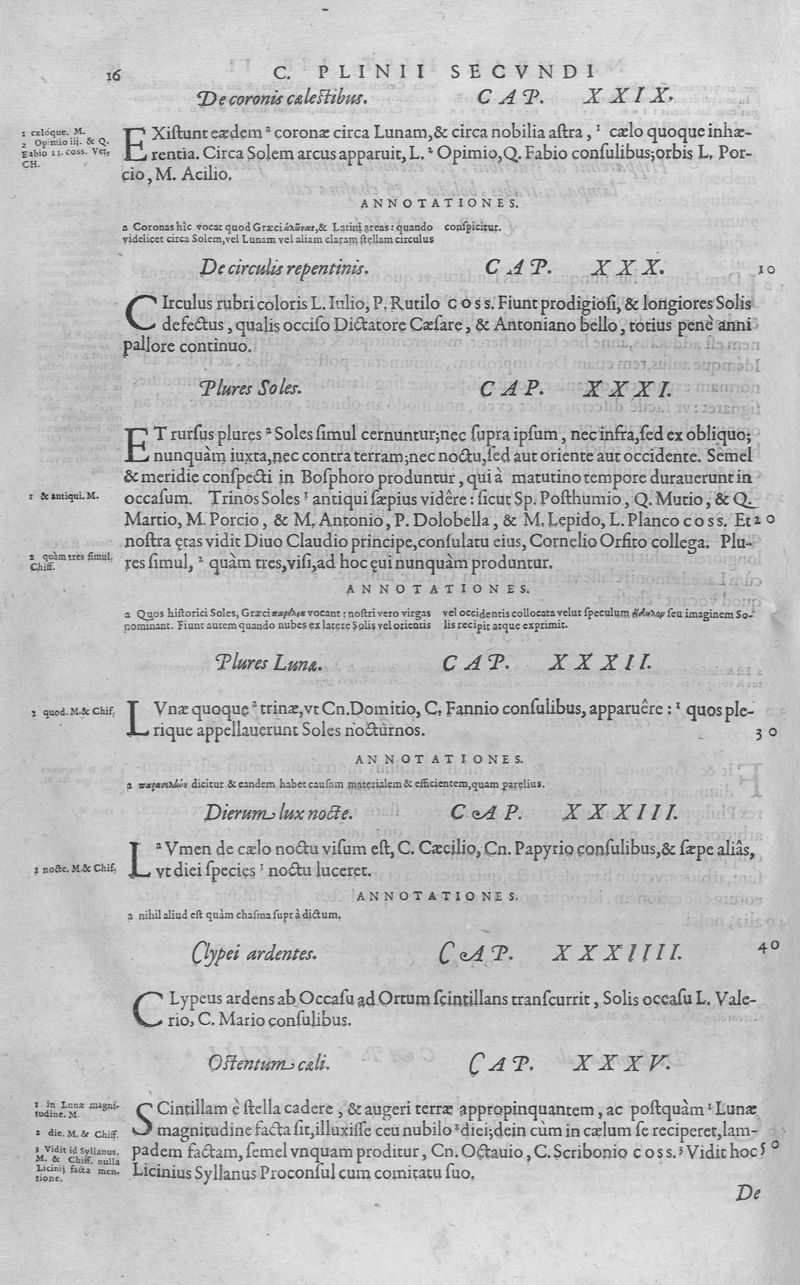 16
C. PLINII SECVNDI
De coronis cælestibus. CAP. XXIX.
1 cælóque. M.
2 Opimio iij. & Q.
Fabio 11. coss. Vet.
CH.
EXiſtunt eædem ª coronæ circa Lunam, & circa nobilia aſtra, ¹ cælo quoque inhæ-
rentia. Circa Solem arcus apparuit, L. ² Opimio, Q. Fabio conſulibus; orbis L. Por-
cio, M. Acilio.
ANNOTATIONES.
a Coronas hîc vocat quod Græci & Latini areas: quando
videlicet circa Solem, vel Lunam vel aliam claram ſtellam circulus
conſpicitur.
De circulis repentinis. CAP. XXX.
10
CIrculus rubri coloris L. Iulio, P. Rutilo coss. Fiunt prodigioſi, & longiores Solis
defectus, qualis occiſo Dictatore Cæſare, & Antoniano bello, totius penè anni
pallore continuo.
Plures Soles. CAP. XXXI.
ET rurſus plures ª Soles ſimul cernuntur; nec ſupra ipſum, nec infra, ſed ex obliquo;
nunquàm iuxta, nec contra terram; nec noctu, ſed aut oriente aut occidente. Semel
& meridie conſpecti in Boſphoro produntur, qui à matutino tempore durauerunt in
1 & antiqui. M.
occaſum. Trinos Soles ¹ antiqui ſæpius vidêre: ſicut Sp. Poſthumio, Q. Mutio, & Q.
Martio, M. Porcio, & M. Antonio, P. Dolobella, & M. Lepido, L. Planco coss. Et 20
noſtra ętas vidit Diuo Claudio principe, conſulatu eius, Cornelio Orfito collega. Plu-
2 quàm tres ſimul.
Chiff.
res ſimul, ² quàm tres, viſi, ad hoc ęui nunquàm produntur.
ANNOTATIONES.
a Quos hiſtorici Soles, Græci παρήλια vocant: noſtri vero virgas
nominant. Fiunt autem quando nubes ex latere Solis vel orientis
vel occidentis collocata velut ſpeculum εἴδωλον ſeu imaginem So-
lis recipit atque exprimit.
Plures Lunæ. CAP. XXXII.
1 quod. M. & Chif.
LVnæ quoque ª trinæ, vt Cn. Domitio, C. Fannio conſulibus, apparuêre: ¹ quos ple-
rique appellauerunt Soles nocturnos.
30
ANNOTATIONES.
a dicitur & eandem habet cauſam materialem & efficientem, quam parelius.
Dierum lux nocte. CAP. XXXIII.
LªVmen de cælo noctu viſum eſt, C. Cæcilio, Cn. Papyrio conſulibus, & ſæpe aliâs,
1 nocte. M. & Chif.
vt diei ſpecies ¹ noctu luceret.
ANNOTATIONES.
a nihil aliud eſt quàm chaſma ſuprà dictum.
Clypei ardentes. CAP. XXXIIII.
40
CLypeus ardens ab Occaſu ad Ortum ſcintillans tranſcurrit, Solis occaſu L. Vale-
rio, C. Mario conſulibus.
Oſtentum cæli. CAP. XXXV.
1 in Lunæ magni-
tudine. M
SCintillam è ſtella cadere, & augeri terræ appropinquantem, ac poſtquàm ¹ Lunæ
2 die. M. & Chiff.
magnitudine facta ſit, illuxiſſe ceu nubilo ² diei; dein cùm in cælum ſe reciperet, lam-
3 Vidit id Syllanus.
M. & Chiff. nulla
Licinij facta men-
tione.
padem factam, ſemel vnquam proditur, Cn. Octauio, C. Scribonio coss. ³ Vidit hoc 50
Licinius Syllanus Proconſul cum comitatu ſuo.
De